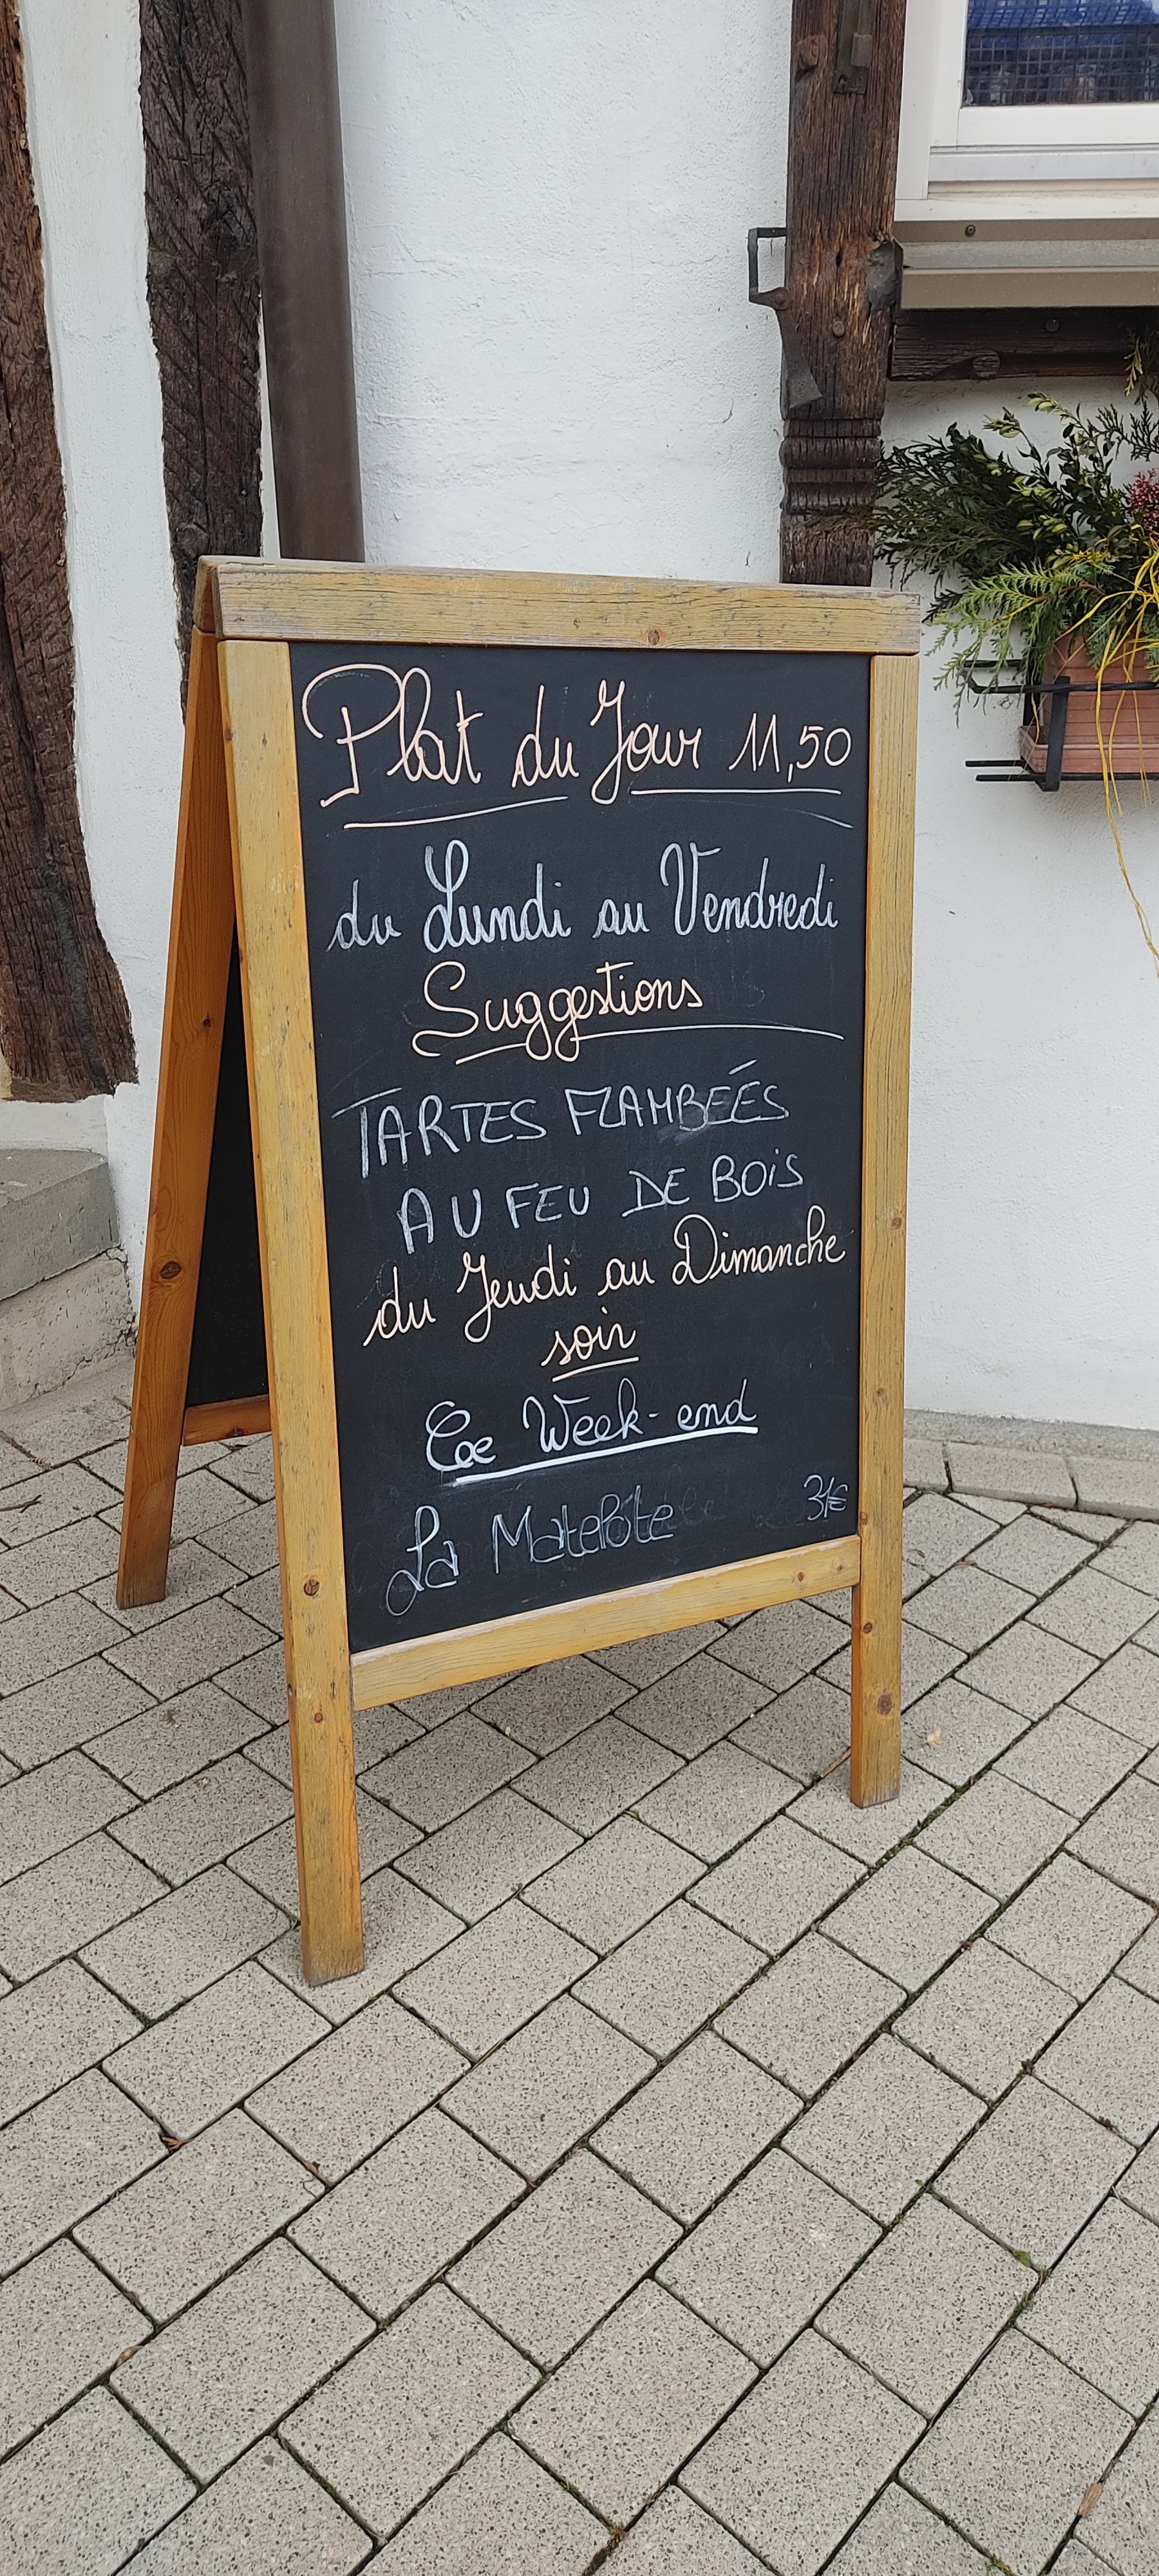 Plat du Jour 11,50
du Lundi au Vendredi
Suggestions
TARTES FLAMBEÉS
AU FEU DE BOiS
du Jeudi au Dimanche
soir
Ce Week-end
La Matelôte 31€